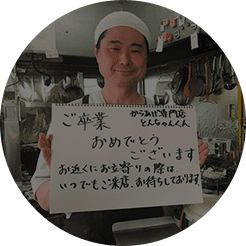 からあげ専門店
とんちゃんくん
ご卒業
おめでとう
ございます
お近くにお立寄りの際は
いつでもご来店、お待ちしております。